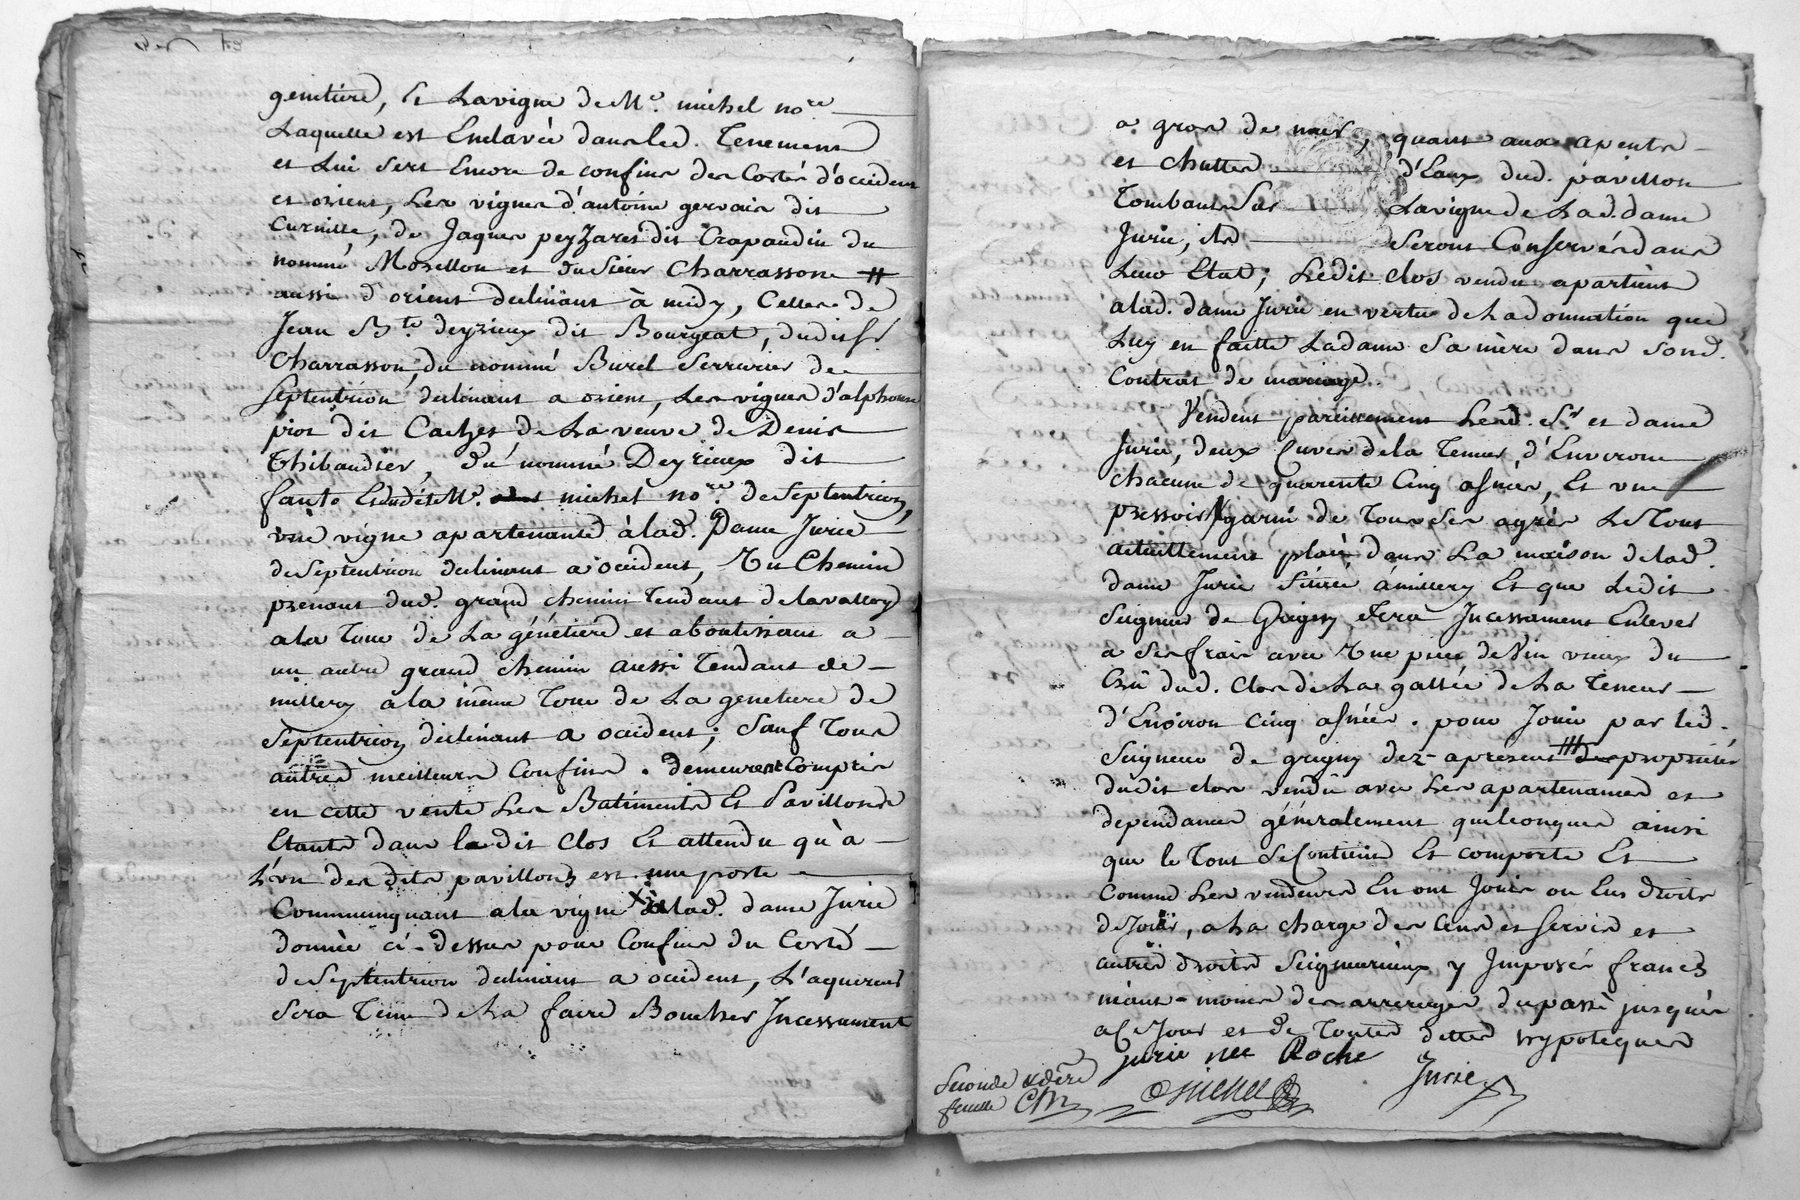 genetiere, Et Lavigne de Me. michel nore
Laquelle est Enclavée dans led. Tenement
et Lui sert Encore de confins des Costés d'occident
et orient, Les vignes d'antoine gervais dit
de Jaques peyzaret dit Crapaudin du
nommé Morellon et du Sieur Charrasson #
aussi d'orient declinant à midy, Celles de
Jean Bte. deyrieux dit Bourgeat, dudit Sr.
Charrasson, du nommé Burel Serrurier de
Septentrion declinant a orient, Les vignes d'alphonse
piot dit Cachet de La veuve de Denis
Thibaudier, du nommé Deyrieux dit
fanto Et dudit Me. michel nore. de Septentrion,
une vigne apartenante à lad. Dame Jurie
de Septentrion declinant a occident, Un Chemin
prenant dud. grand chemin Tendant de lavallory
a la Tour de La génetiere et aboutissant a
un autre grand chemin aussi Tendant de
millery a la même Tour de La genetiere de
Septentrion declinant a occident; Sauf Tous
autres meilleurs Confins. demeurent Compris
en cette vente Les Batiments Et Pavillons
Etants dans le dit Clos Et attendu qu'à
L'un des dits pavillons est une porte
Communiquant a la vigne de lad. dame Jurie
donnée ci-dessus pour Confins du Costé
de Septentrion declinant a occident, L'aquereur
Sera Tenu de La faire Boucher Incessament
a gros de mur, quant aux apents
et chuttes d'Eaux dud. pavillon
Tombants Sur Lavigne de Lad. dame
Jurie, ils Seront Conservés dans
Leur Etat; Ledit clos vendu apartient
a lad. dame Jurie en vertu de La donnation que
Luy en faitte Ladame Sa mère dans Sond.
Contrat de mariage.
Vendent pareillement Lesd. Sr et dame
Jurie, deux Cuves de la Teneur d'Environ
chacune de quarente Cinq asnées, Et une
pressoir garni de Tous Ses agrès Le Tout
actuellement placé dans La maison de lad.
dame Jurie Situeé à millery Et que Ledit
Seigneur de Grigny fera Incessament Enlever
a Ses frais avec Une piece de Vin vieux du
Crû dud. Clos de La gallée de La Teneur
d'Environ Cinq asnées. pour Jouir par led.
Seigneur de grigny dez-apresent des proprietés
dudit clos Vendû avec Les apartenances et
dependances généralement quelconques ainsi
que le Tout Se Contient Et comporte Et
Comme Les vendeurs En ont Jouis ou Eus droits
de Jouir, a La charge des Cens et Servis et
autres droits Seigneuriaux y Imposés francs
néant-moins des arrerages du passé jusques
a Ce Jour et de Toutes dettes hypoteques
jurie nee Roche
Jurie
Michel
Seconde &dere
feuille CM